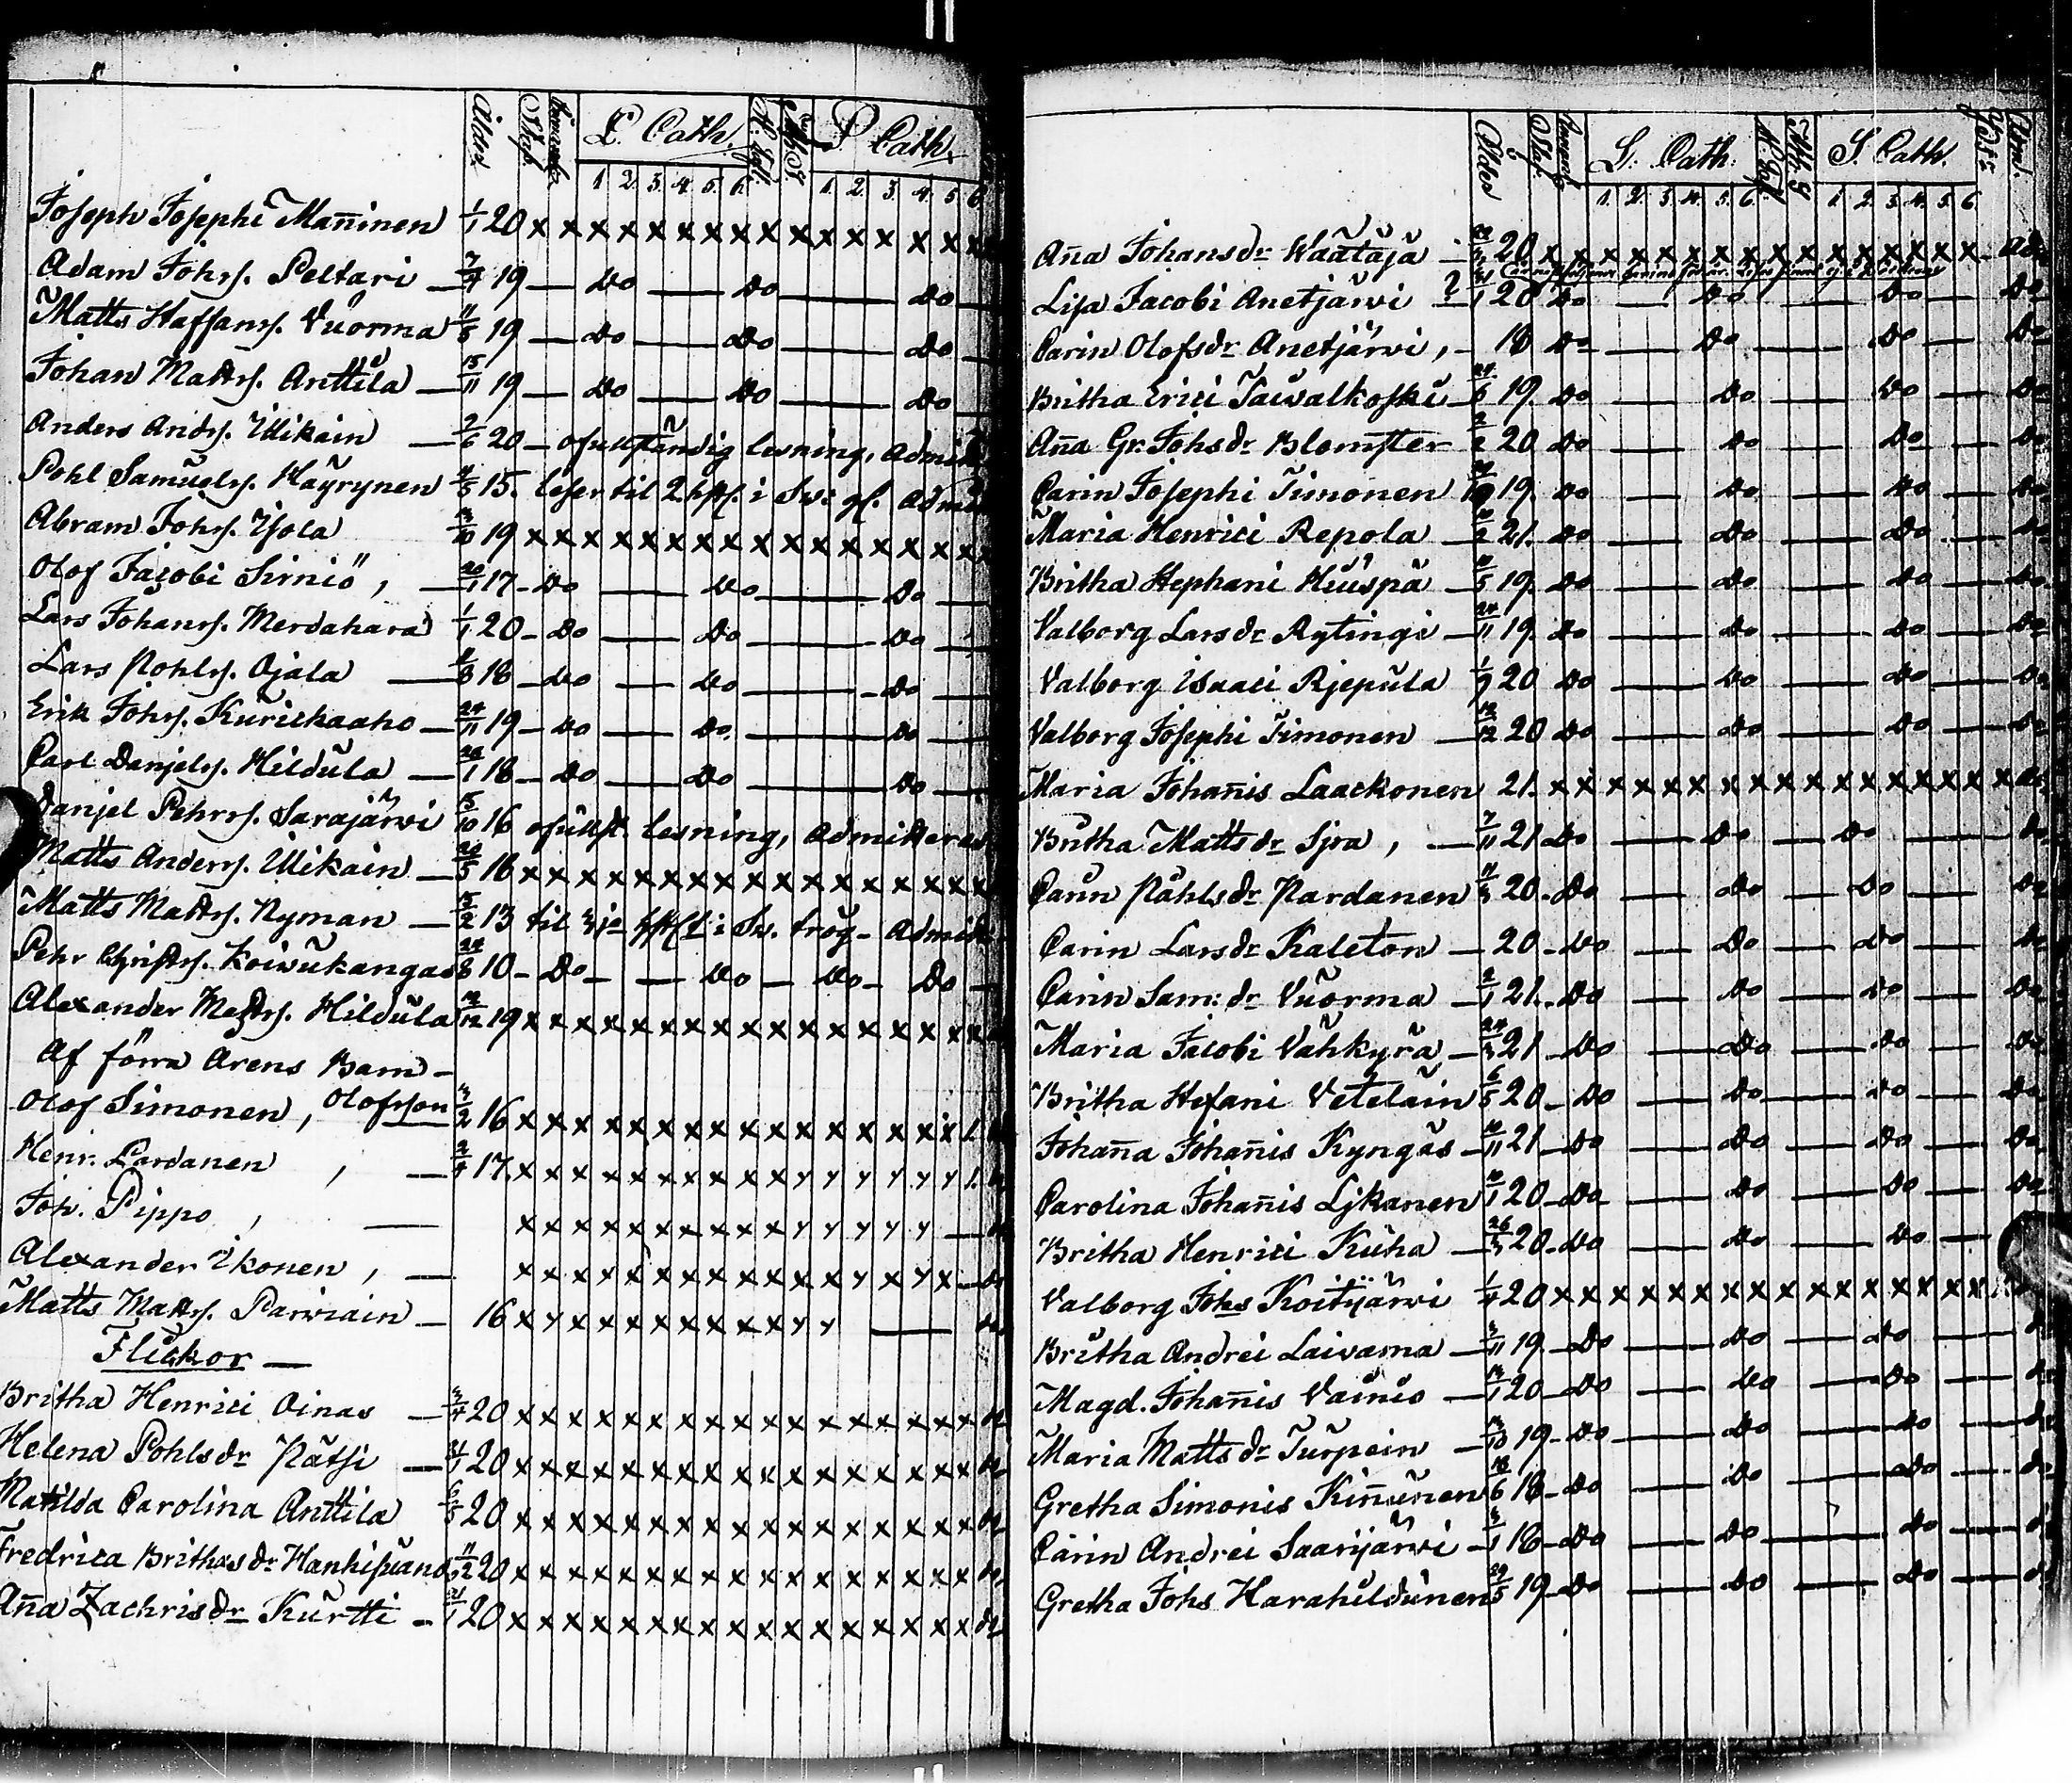 Ålder L. Cath. S. Cath.
1. 2. 3. 4. 5. 6. 1. 2. 3. 4. 5 6
Joseph Josephi Mañinen 1/1 20 x x x x x x x x x x x x x x x x
Adam Johss. Peltari — 19 — do — do — do —
Matts Staffanss. Vuorma 11/8 19 — do — do — do —
Johan Mattss. Anttila — 15/11 19 — do — do — do —
Anders Anders. Ulikain — 2/6 20 — ofullständig lesning, admitt
Pohl Samuels. Häyrynen 15. leser til 2 hfst. i Sv: gl. admitt
Abram Johss. Isola 19 x x x x x x x x x x x x x x x x
Olof Jacobi Sirniö, — 17 — do — do — do —
Lars Johanss. Merdahara 1/1 20 — do — do — do
Lars Pohlss. Ojala — 18 — do — do — do —
Erik Johss. Kurickaaho — 24/11 19 — do — do. — do —
Carl Danjelss. Hildula — 18 — do — do — do —
Danjel Pehrss. Sarajärvi 15/10 16 ofullst. lesning, admitteras
Matts Anderss. Ulikain — 18 x x x x x x x x x x x x x x x x
Matts Mattss. Nyman — 13 til 3je i Sv. trög — admitt
Pehr Christss. Koivukangas 10 — do — do — do — do —
Alexander Mattss. Hildula 19 x x x x x x x x x x x x x x x x
Af förra årens Barn —
Olof Simonen, Olofsson 3/2 16 x x x x x x x x x x x x x x x x 1.
Henr. Pardanen, — 17. x x x x x x x x x x y y y y y y 1.
Joh. Pippo, — x x x x x x x x x x y y y y y —
Alexander Ikonen, — x x x x x x x x x x x x y x y x —
Matts Mattss. Parviain — 16 x y x x x x x x x x y y —
Flickor —
Britha Henrici Oinas — 3/4 20 x x x x x x x x x x x x x x x x
Helena Pohlsdr Pätsi — 20 x x x x x x x x x x x x x x x x
Matilda Carolina Anttila 20 x x x x x x x x x x x x x x x x
Fredrica Brithasdr Hanhisuando 11/12 20 x x x x x x x x x x x x x x x x
Aña Zachrisdr Kurtti — 20 x x x x x x x x x x x x x x x x
Ålder L. Cath. S. Cath.
1. 2. 3. 4. 5. 6. 1. 2. 3. 4. 5. 6
Aña Johansdr Waataja — 20 x x x x x x x x x x x x x x x x
Lisa Jacobi Anetjärvi ? 20 do — do — do — do
Carin Olofsdr Anetjärvi, — 18 do — do — do — do
Britha Erici Taivalkoski — 19. do — do — do — do
Aña Gr. Johsdr Blomster 20 do — do — do — do
Carin Josephi Timonen 19. do — do — do — do
Maria Henrici Repola — 21. do — do — do — do
Britha Stephani Hiuspä — 19. do — do — do — do
Valborg Larsdr Rytingi — 24/11 19. do — do — do — do
Valborg Isaaci Rjepula 20 do — do — do — do
Valborg Josephi Timonen — 20 do — do — do — do
Maria Johañis Laackonen 21. x x x x x x x x x x x x x x x x
Britha Mattsdr Sjra, — 7/11 21 do — do — do — do
Carin Påhlsdr Pardanen 11/3 20. do — do — do — do
Carin Larsdr Kaleton — 20 — do — do — do — do
Carin Sam:dr Vuorma — 21. do — do — do — do
Maria Jacobi Vähkyrä — 24/3 21 — do — do — do — do
Britha Stefani Vetelain 6/5 20 — do — do — do — do
Johaña Johañis Kyngäs — 10/11 21 — do — do — do — do
Carolina Johañis Ljkanen 20 — do — do — do — do
Britha Henrici Kuha — 26/3 20 — do — do — do —
Valborg Johs Koitijärvi 1/4 20 x x x x x x x x x x x x x x x x
Britha Andrei Laivama — 3/11 19. — do — do — do —
Magd. Johañis Vainio — 20 — do — do — do —
Maria Mattsdr Turpein — 19 — do — do — do —
Gretha Simonis Kiñunen 18/6 18 — do — do — do —
Carin Andrei Saarijärvi — 18 — do — do — do —
Gretha Johs Harahildunen 19 — do — do — do —